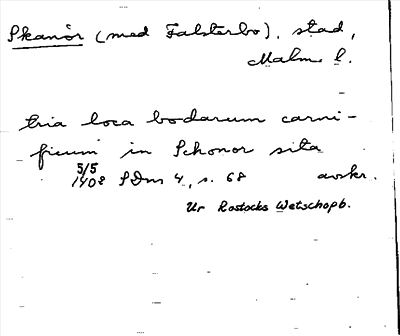 Skanör (med Falsterbo), stad,
Malm. l.
tria loca bodarum carni-
ficum in Schonor sita
5/5
1408 SDns 4, s. 68 avskr.
Ur Rostocks Wetschopb.